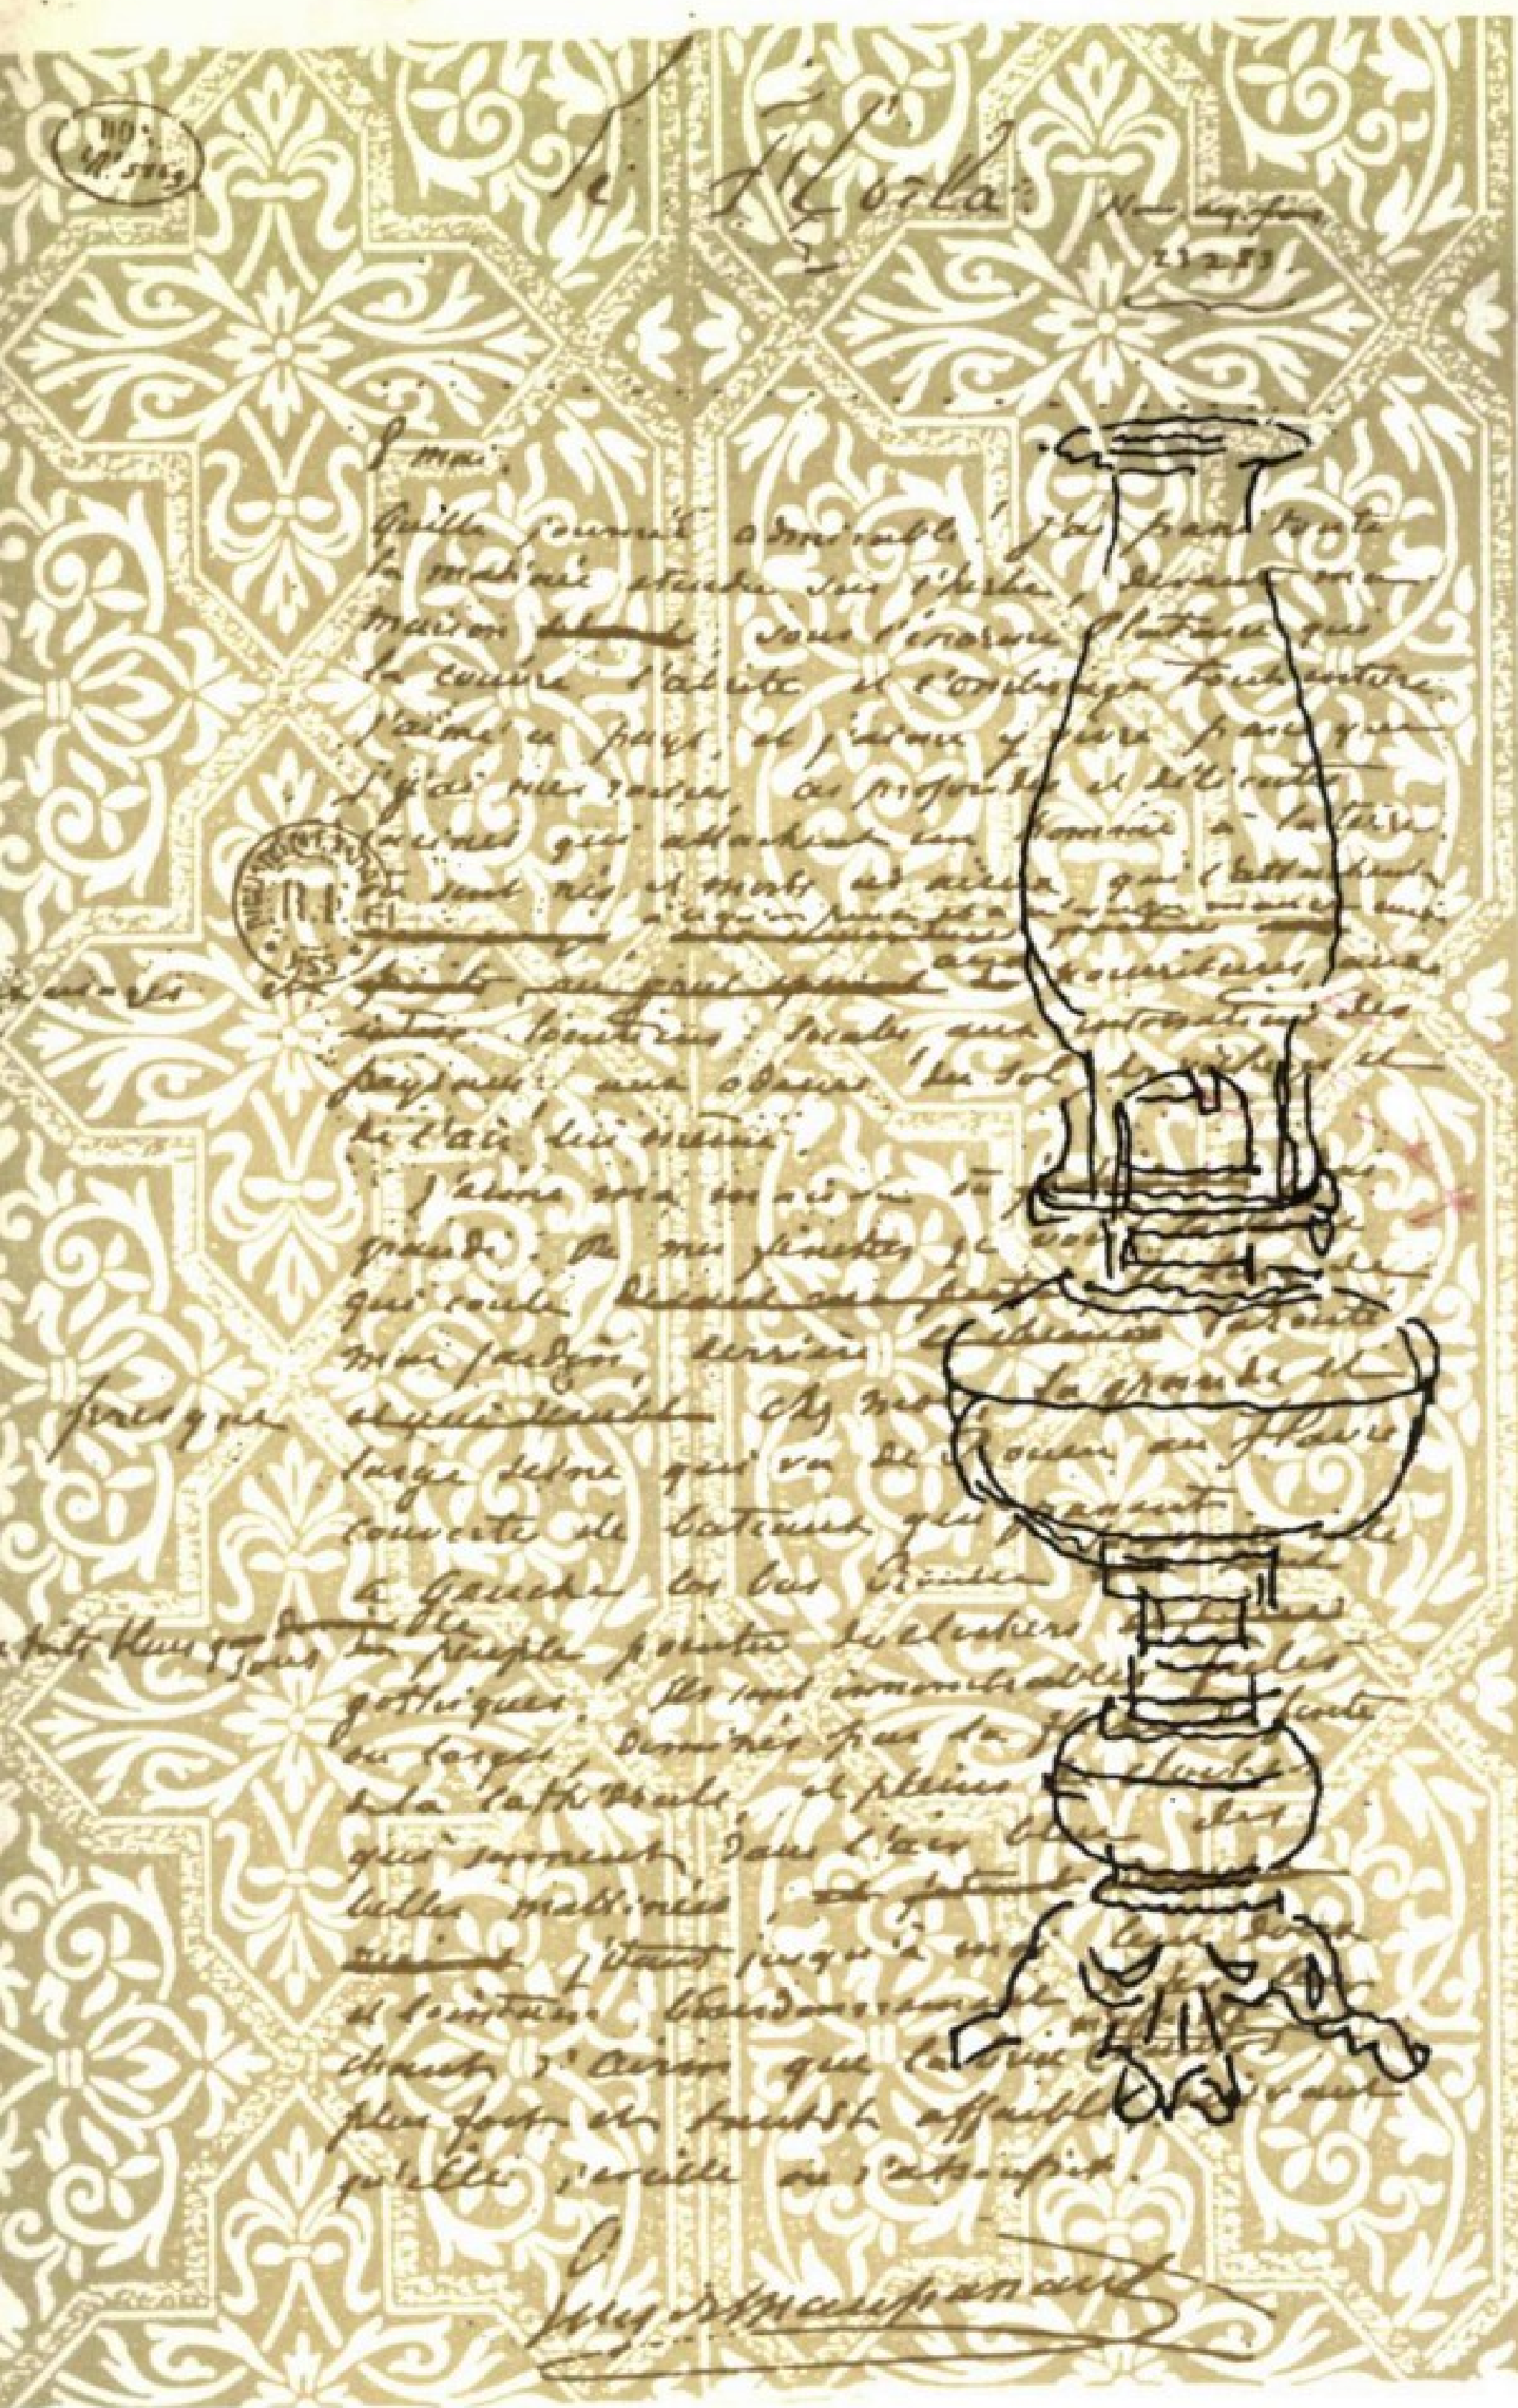 Le Horla
23283
8 mai.
Quelle journée admirable! J'ai passé toute
la matinée étendu sur l'herbe, devant ma
maison sous l'énorme platane qui
la couvre l'abrite et l'ombrage toute entière.
J'aime ce pays, et j'aime y vivre parce que
j'y ai mes racines, ces profondes et délicates
racines qui attachent un homme à la terre
où sont nés et morts ses aieux qui l'attachent
à ce qu'on pense et à ce qu'on mange
usages aux nourritures, aux
locutions locales aux intonations des
paysans, aux odeurs du sol des villages et
de l'air lui même.
J'aime ma maison où j'ai
grandi. De mes fenêtres je vois la Seine
qui coule devant ma porte le long de
mon jardin, derrière la route
presque chez moi la grande et
large Seine qui va de Rouen au Havre
couverte de bateaux qui passent
à gauche là bas Rouen
toits bleus sous le peuple pointu des clochers
gothiques. Ils sont innombrables, frêles
ou larges, dominés par la flèche de fonte
de la cathédrale, et pleins de cloches
qui sonnent dans l'air bleu des
belles matinées, et jetant
jetant jusqu'à moi leur doux
et lointain bourdonnement de fer
chant d'airain que la brise m'apporte
plus fort et tantôt affaibli suivant
qu'elle s'éveille ou s'assoupit.
Guy de Maupassant